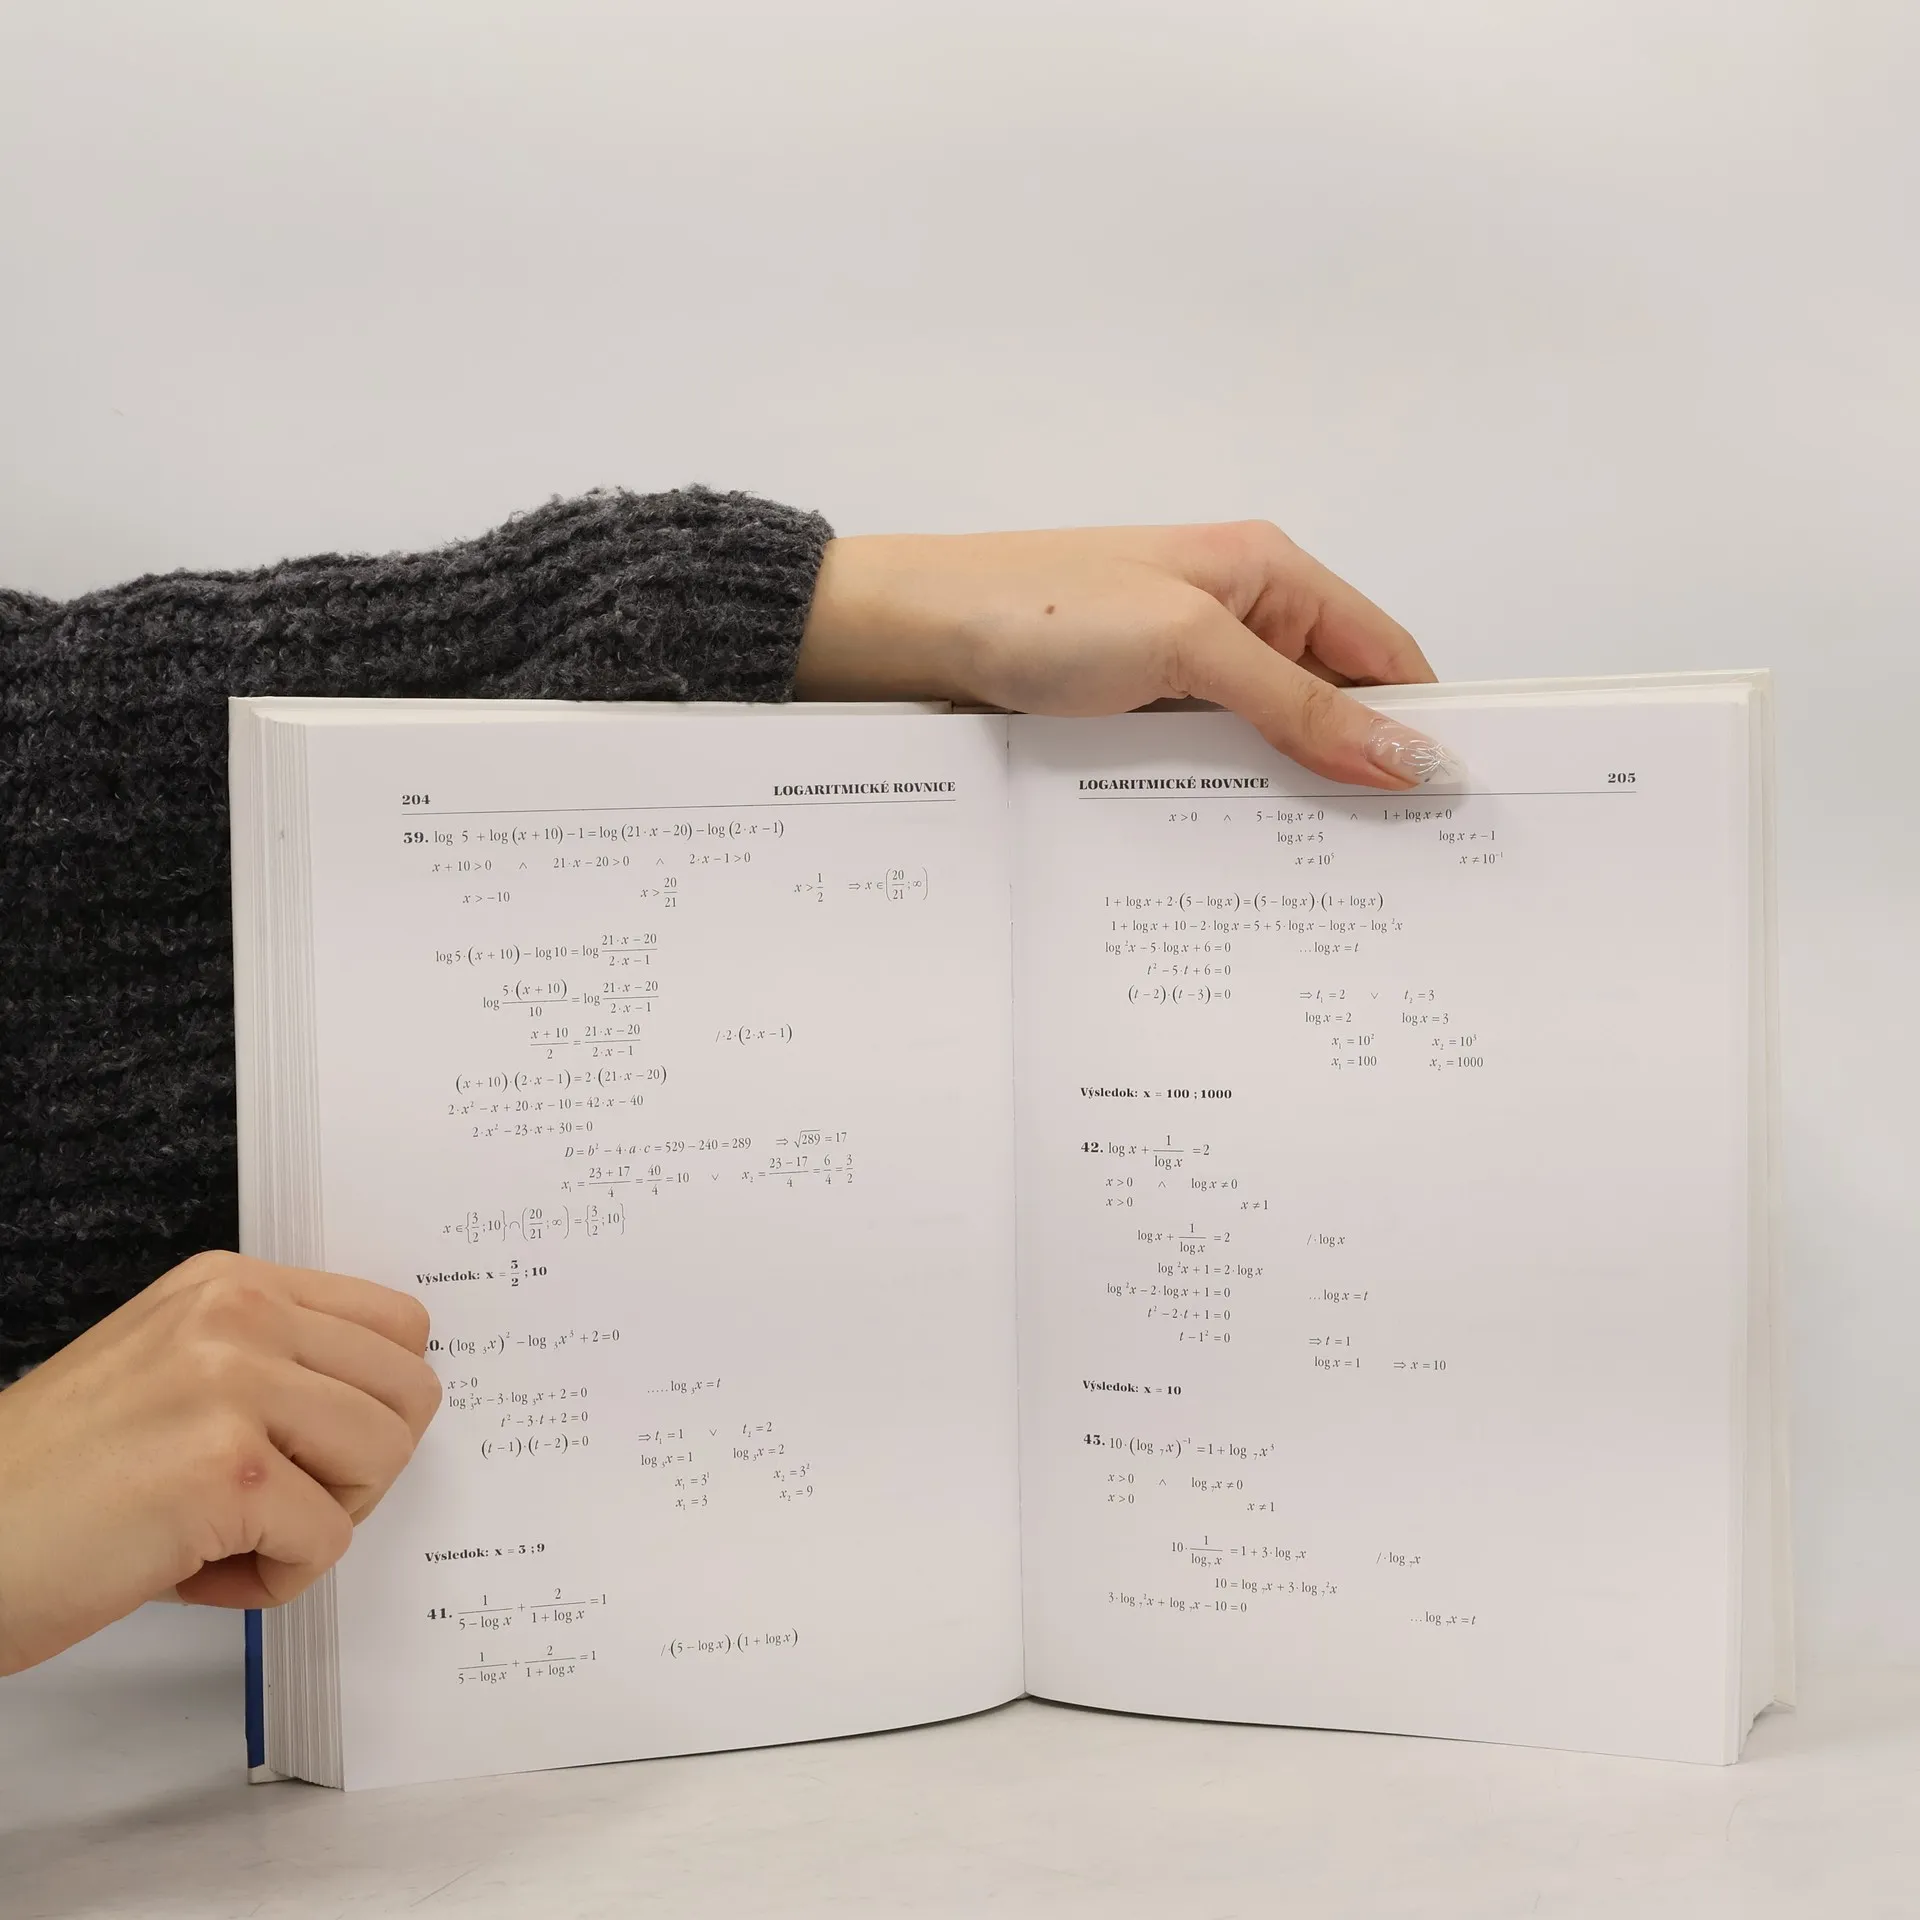 204 LOGARITMICKÉ ROVNICE
39. log 5 + log (x + 10) − 1 = log (21·x − 20) − log (2·x − 1)
x + 10 > 0 ∧ 21·x − 20 > 0 ∧ 2·x − 1 > 0
x > −10 x > 20/21 x > 1/2 ⇒ x ∈ (20/21 ; ∞)
log 5·(x + 10) − log 10 = log (21·x − 20)/(2·x − 1)
log 5·(x + 10)/10 = log (21·x − 20)/(2·x − 1)
(x + 10)/2 = (21·x − 20)/(2·x − 1) /·2·(2·x − 1)
(x + 10)·(2·x − 1) = 2·(21·x − 20)
2·x² − x + 20·x − 10 = 42·x − 40
2·x² − 23·x + 30 = 0
D = b² − 4·a·c = 529 − 240 = 289 ⇒ √289 = 17
x₁ = (23 + 17)/4 = 40/4 = 10 ∨ x₂ = (23 − 17)/4 = 6/4 = 3/2
x ∈ {3/2 ; 10} ∩ (20/21 ; ∞) = {3/2 ; 10}
Výsledok: x = 3/2 ; 10
0. (log ₃x)² − log ₃x³ + 2 = 0
x > 0
log ₃²x − 3·log ₃x + 2 = 0 .....log ₃x = t
t² − 3·t + 2 = 0
(t − 1)·(t − 2) = 0 ⇒ t₁ = 1 ∨ t₂ = 2
log ₃x = 1 log ₃x = 2
x₁ = 3¹ x₂ = 3²
x₁ = 3 x₂ = 9
Výsledok: x = 3 ; 9
41. 1/(5 − log x) + 2/(1 + log x) = 1
1/(5 − log x) + 2/(1 + log x) = 1 /·(5 − log x)·(1 + log x)
LOGARITMICKÉ ROVNICE 205
x > 0 ∧ 5 − log x ≠ 0 ∧ 1 + log x ≠ 0
log x ≠ 5 log x ≠ −1
x ≠ 10⁵ x ≠ 10⁻¹
1 + log x + 2·(5 − log x) = (5 − log x)·(1 + log x)
1 + log x + 10 − 2·log x = 5 + 5·log x − log x − log ²x
log ²x − 5·log x + 6 = 0 ...log x = t
t² − 5·t + 6 = 0
(t − 2)·(t − 3) = 0 ⇒ t₁ = 2 ∨ t₂ = 3
log x = 2 log x = 3
x₁ = 10² x₂ = 10³
x₁ = 100 x₂ = 1000
Výsledok: x = 100 ; 1000
42. log x + 1/log x = 2
x > 0 ∧ log x ≠ 0
x > 0 x ≠ 1
log x + 1/log x = 2 /·log x
log ²x + 1 = 2·log x
log ²x − 2·log x + 1 = 0 ...log x = t
t² − 2·t + 1 = 0
t − 1² = 0 ⇒ t = 1
log x = 1 ⇒ x = 10
Výsledok: x = 10
43. 10·(log ₇x)⁻¹ = 1 + log ₇x³
x > 0 ∧ log ₇x ≠ 0
x > 0 x ≠ 1
10·1/log₇ x = 1 + 3·log ₇x /·log ₇x
10 = log ₇x + 3·log ₇²x
3·log ₇²x + log ₇x − 10 = 0 ...log ₇x = t